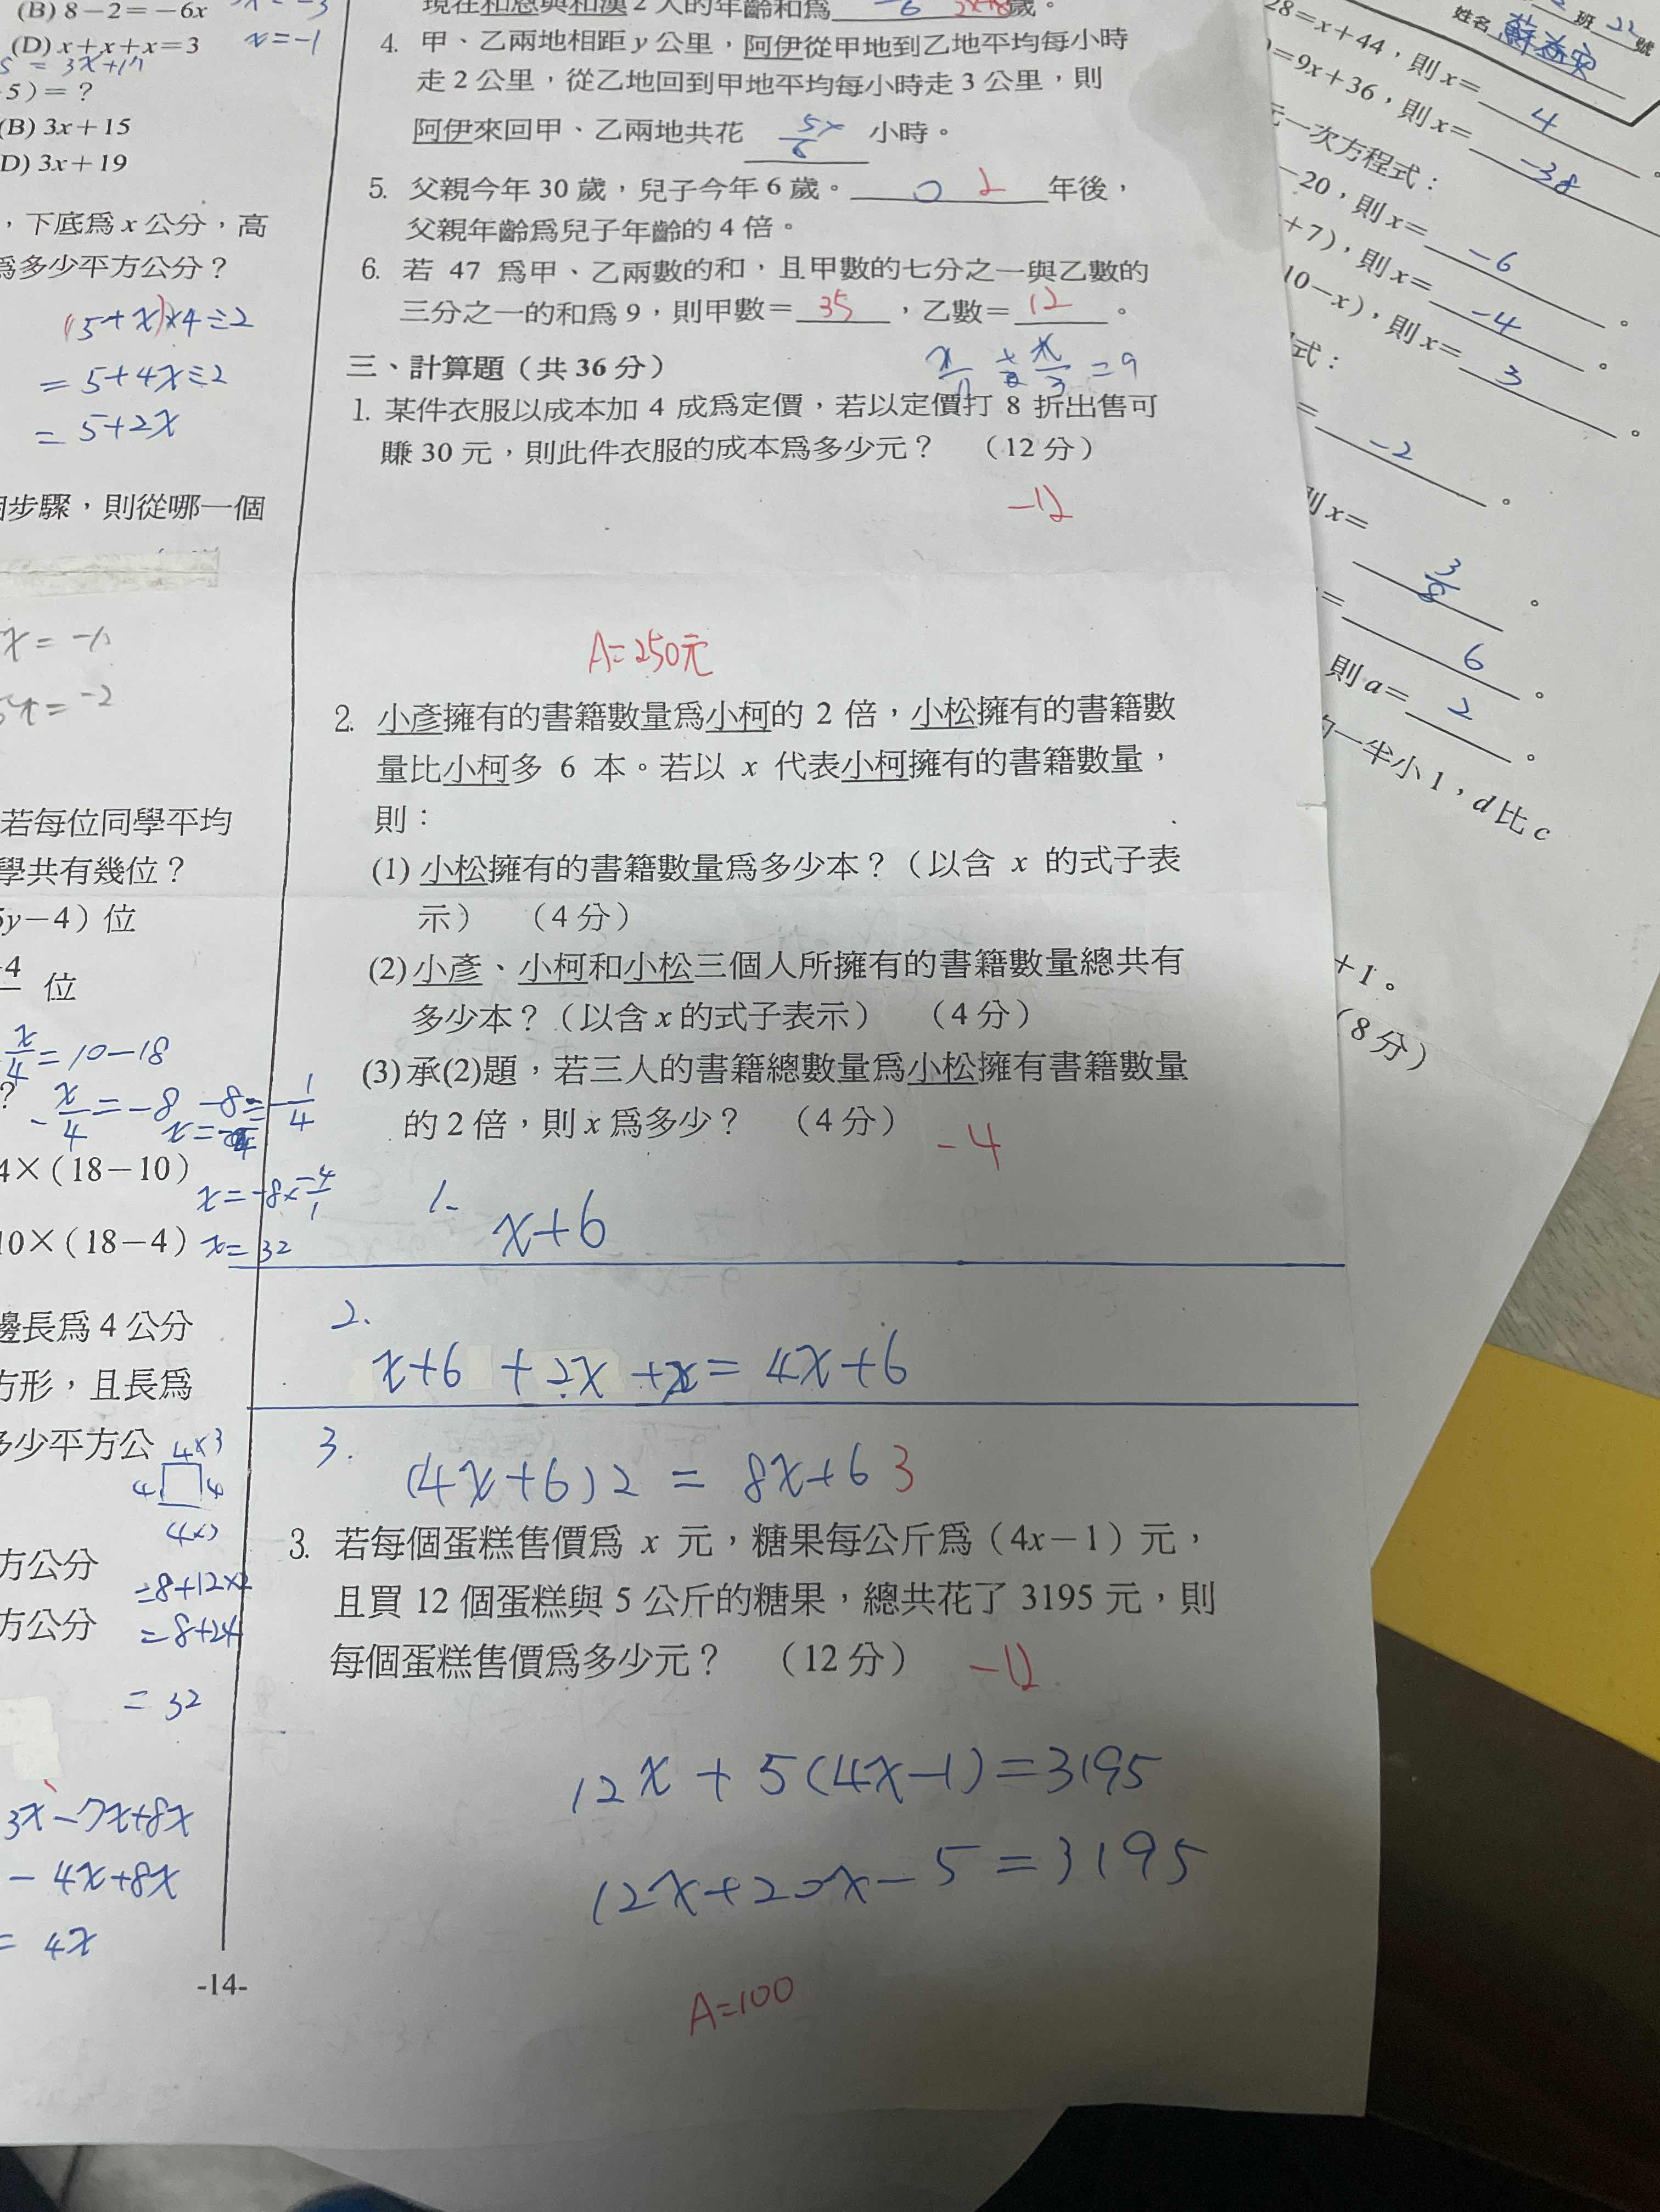 (B) 8－2＝－6x
(D) x＋x＋x＝3
x=-1
＝3x+19
5）＝？
(B) 3x＋15
D) 3x＋19
，下底為 x 公分，高
為多少平方公分？
(5+x)×4÷2
=5+4x÷2
=5+2x
步驟，則從哪一個
若每位同學平均
學共有幾位？
5y－4）位
位
x/4=10-18
-x/4=-8
4×（18－10）
10×（18－4）
x=32
邊長為 4 公分
方形，且長為
多少平方公
4×3
4 4
方公分
=8+12×2
方公分
=8+24
=32
3x-7x+8x
-4x+8x
=4x
-14-
現在和恩與和漢 2 人的年齡和為 歲。
4. 甲、乙兩地相距 y 公里，阿伊從甲地到乙地平均每小時
走 2 公里，從乙地回到甲地平均每小時走 3 公里，則
阿伊來回甲、乙兩地共花 小時。
5. 父親今年 30 歲，兒子今年 6 歲。 0 2 年後，
父親年齡為兒子年齡的 4 倍。
6. 若 47 為甲、乙兩數的和，且甲數的七分之一與乙數的
三分之一的和為 9，則甲數＝ 35 ，乙數＝ 12 。
三、計算題（共 36 分）
1. 某件衣服以成本加 4 成為定價，若以定價打 8 折出售可
賺 30 元，則此件衣服的成本為多少元？ （12 分）
-12
A=250元
2. 小彥擁有的書籍數量為小柯的 2 倍，小松擁有的書籍數
量比小柯多 6 本。若以 x 代表小柯擁有的書籍數量，
則：
(1) 小松擁有的書籍數量為多少本？（以含 x 的式子表
示） （4 分）
(2) 小彥、小柯和小松三個人所擁有的書籍數量總共有
多少本？（以含 x 的式子表示） （4 分）
(3) 承(2)題，若三人的書籍總數量為小松擁有書籍數量
的 2 倍，則 x 為多少？ （4 分）
-4
1.
x+6
2.
3.
(4x+6)2 = 8x+6 3
3. 若每個蛋糕售價為 x 元，糖果每公斤為（4x－1）元，
且買 12 個蛋糕與 5 公斤的糖果，總共花了 3195 元，則
每個蛋糕售價為多少元？ （12 分）
-12
12x+5(4x-1)=3195
12x+20x-5=3195
A=100
班 22 號
姓名
28＝x＋44，則 x＝ 4 。
＝9x＋36，則 x＝ -38
元一次方程式：
－20，則 x＝ -6 。
＋7)，則 x＝ -4 。
10－x)，則 x＝ 3 。
式：
＝ -2 。
則 x＝ 3/8 。
＝ 6 。
則 a＝ 2 。
的一半小 1，d 比 c
＋1。
（8 分）